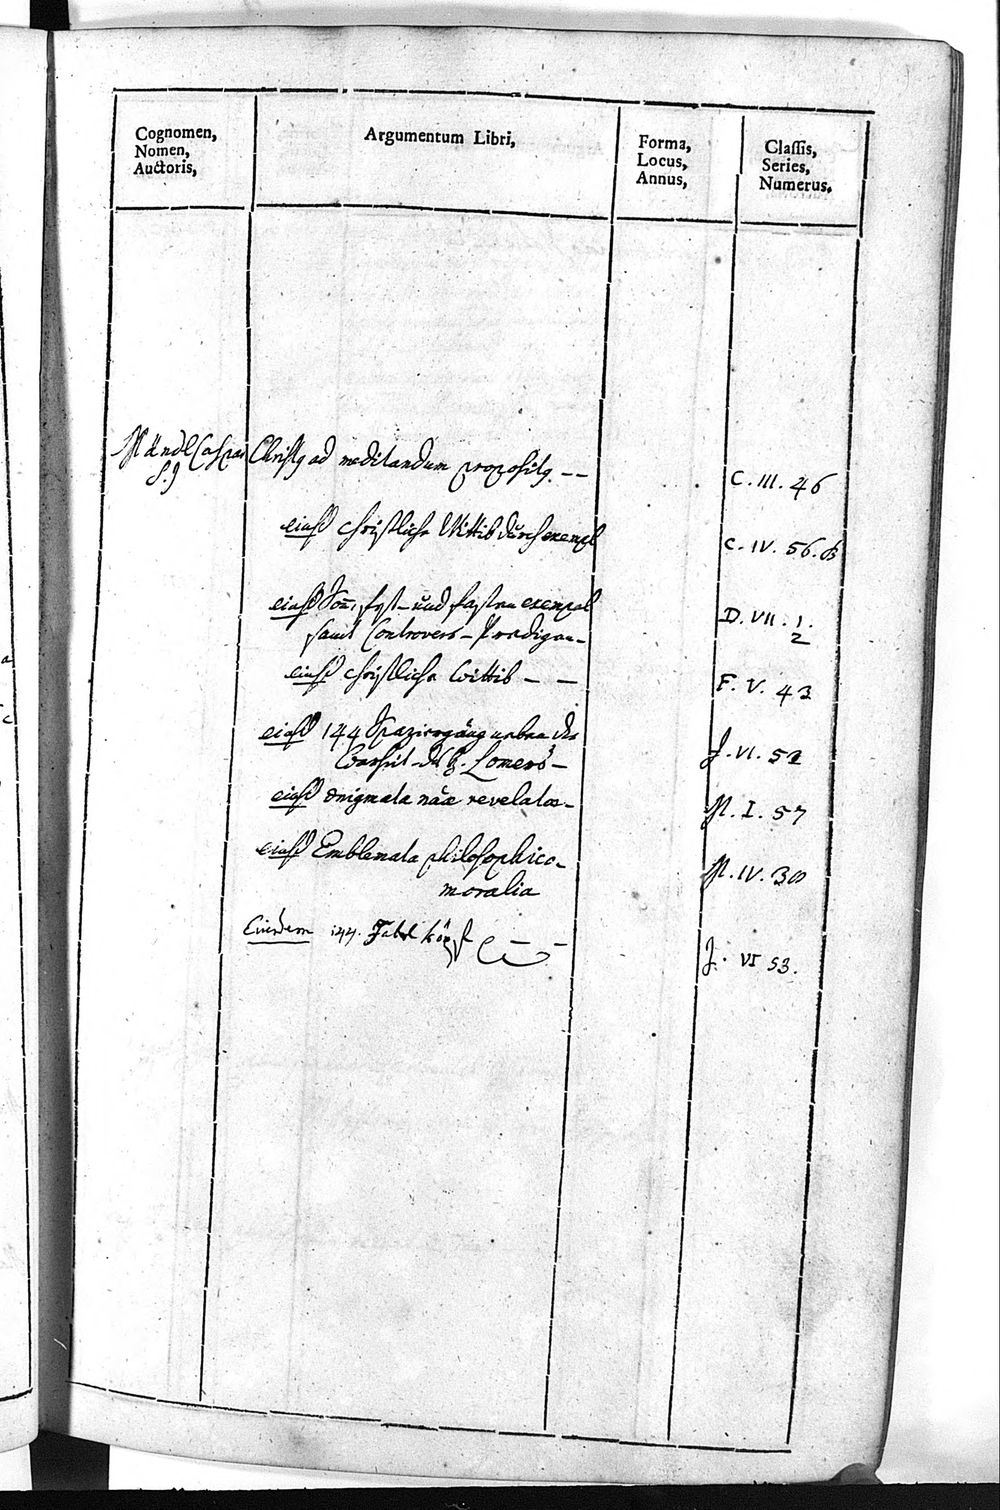 Cognomen,
Nomen,
Auctoris,
Argumentum Libri,
Forma,
Locus,
Annus,
Classis,
Series,
Numerus,
Mändl Caspar
S.J
Christq ad meditandum propositq --
C. III. 46
eiusd christliche Wittib durch exempl
C. IV. 56. B
eiusd Son, fest- und fasten exempel
samt Controvers- Predigen-
D. VII. 1.
2
eiusd christliche Wittib - -
F. V. 43
eiusd 144 Spaziergäng neben der
J. VI. 52
eiusd ænigmata nãæ revelatæ-
M. I. 57
eiusd Emblemata philosophico-
moralia
M. IV. 30
Eiusdem 144. Fabel köpf - -
J. VI 53.